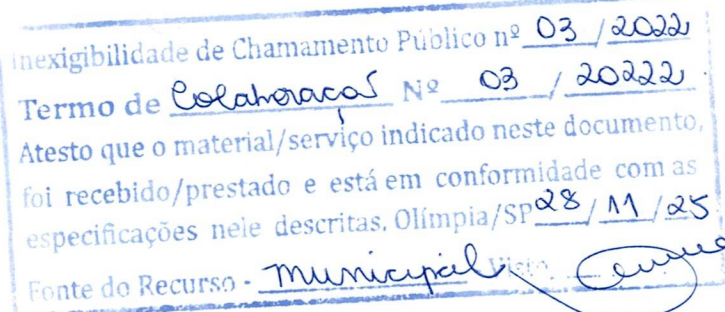 Inexigibilidade de Chamamento Público nº 03 / 2022
Termo de Colaboraçaõ Nº 03 / 20222
Atesto que o material/serviço indicado neste documento,
foi recebido/prestado e está em conformidade com as
especificações nele descritas. Olímpia/SP 28 / 11 / 25
Fonte do Recurso - Municipal Visto